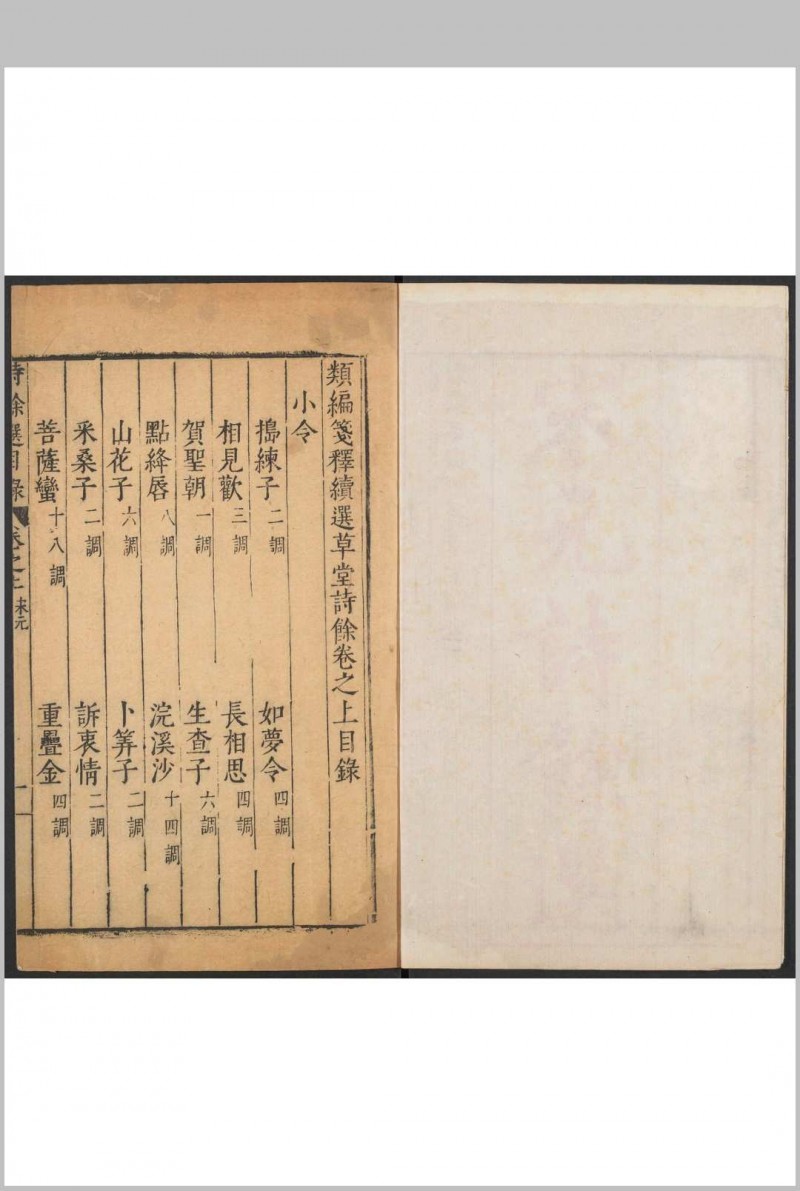 類編箋釋續選草堂詩餘卷之上目錄
小令
搗練子 二調 如夢令 四調
相見歡 三調 長相思 四調
賀聖朝 一調 生查子 六調
點絳唇 八調 浣溪沙 十四調
山花子 六調 卜筭子 二調
釆桑子 二調 訴衷情 二調
菩薩蠻 十八調 重疊金 四調
詩餘選目錄 卷之上 一